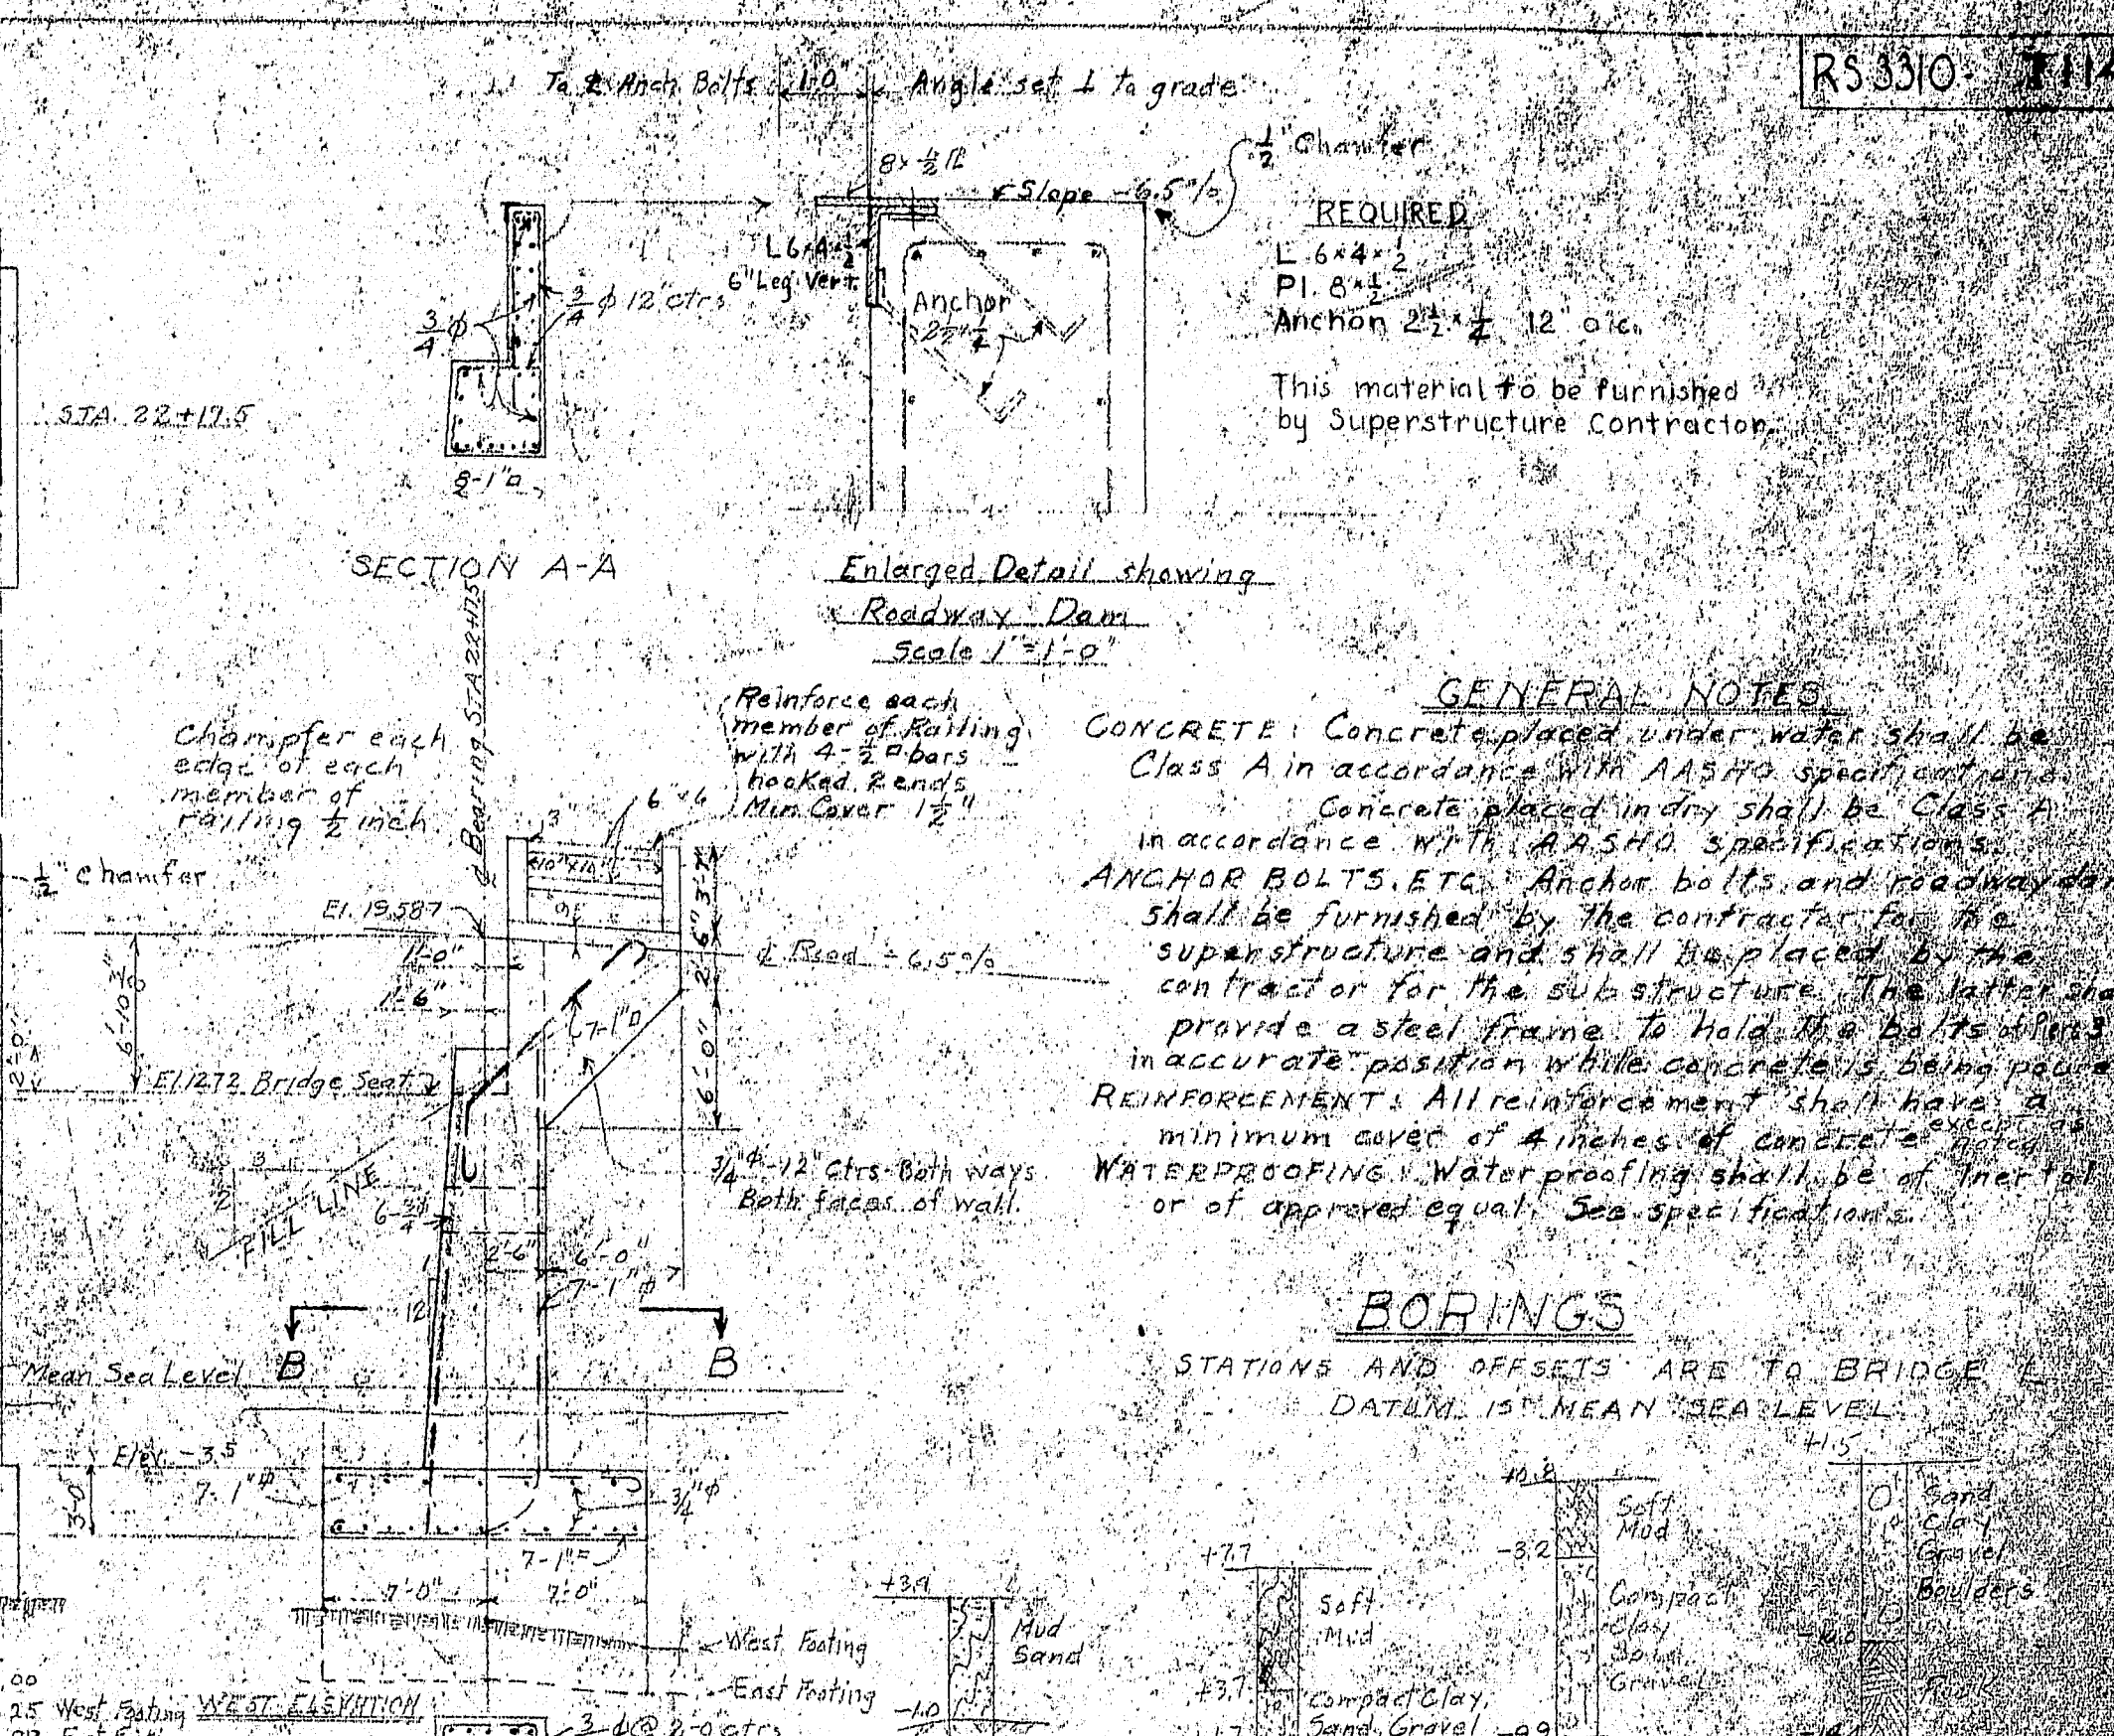 RS 3310-
To ℄ Anch. Bolts 1'-0" Angle set ⊥ to grade
1/2" Chamfer
8 x 1/2 PL
Slope -6.5%
REQUIRED
L 6x4x1/2
6" Leg Vert.
L 6x4x1/2
Pl. 8x1/2
Anchor 2 1/2 x 1/4 12" o.c.
3/4 ϕ 12" ctrs
3/4 ϕ
Anchor
2 1/2 x 1/4
This material to be furnished
by Superstructure Contractor.
STA. 22+17.5
8-1"□
SECTION A-A
Enlarged Detail showing
Roadway Dam
Scale 1"=1'-0"
℄ Bearing STA 22+17.5
Reinforce each
member of Railing
with 4-1/2"□ bars
hooked 2 ends
Min. Cover 1 1/2"
Champfer each
edge of each
member of
railing 1/2 inch.
6"x6
3"
10"x10"
9"
3'-7"
2'-6"
6'-0"
1/2" Chamfer
El. 19.587
1'-0"
1'-6"
℄ Road -6.5%
7-1"□
6'-10 3/8"
2'-0"
El. 12.72 Bridge Seat
3/4"ϕ-12" Ctrs-Both ways
Both faces of wall.
3
2
FILL LINE
6-3/4 ϕ
2'-6" 6'-0"
7-1"ϕ
1
12
B B
Mean Sea Level
Elev. -3.5
7-1"ϕ
3'-0"
3/4"ϕ
7-1"□
7'-0" 7'-0"
West Footing
East Footing
.00
25 West Footing WEST ELEVATION
3-ϕ@2-0 ctrs
GENERAL NOTES
CONCRETE: Concrete placed under water shall be
Class A in accordance with AASHO specifications
Concrete placed in dry shall be Class A
in accordance with AASHO specifications.
ANCHOR BOLTS, ETC. Anchor bolts and roadway dam
shall be furnished by the contractor for the
superstructure and shall be placed by the
contractor for the substructure. The latter sha
provide a steel frame to hold the bolts of Piers 3
in accurate position while concrete is being poure
REINFORCEMENT: All reinforcement shall have a
minimum cover of 4 inches of concrete except as noted
WATERPROOFING: Waterproofing shall be of Inertol
or of approved equal. See specifications.
BORINGS
STATIONS AND OFFSETS ARE TO BRIDGE ℄
DATUM IS MEAN SEA LEVEL
+3.9
Mud
Sand
-1.0
+7.7
Soft
Mud
+3.7
Compact Clay,
Sand, Gravel
+0.8
Soft
Mud
-3.2
Compact
Clay
Gravel
-9.9
+1.5
Sand
Clay
Gravel
Boulders